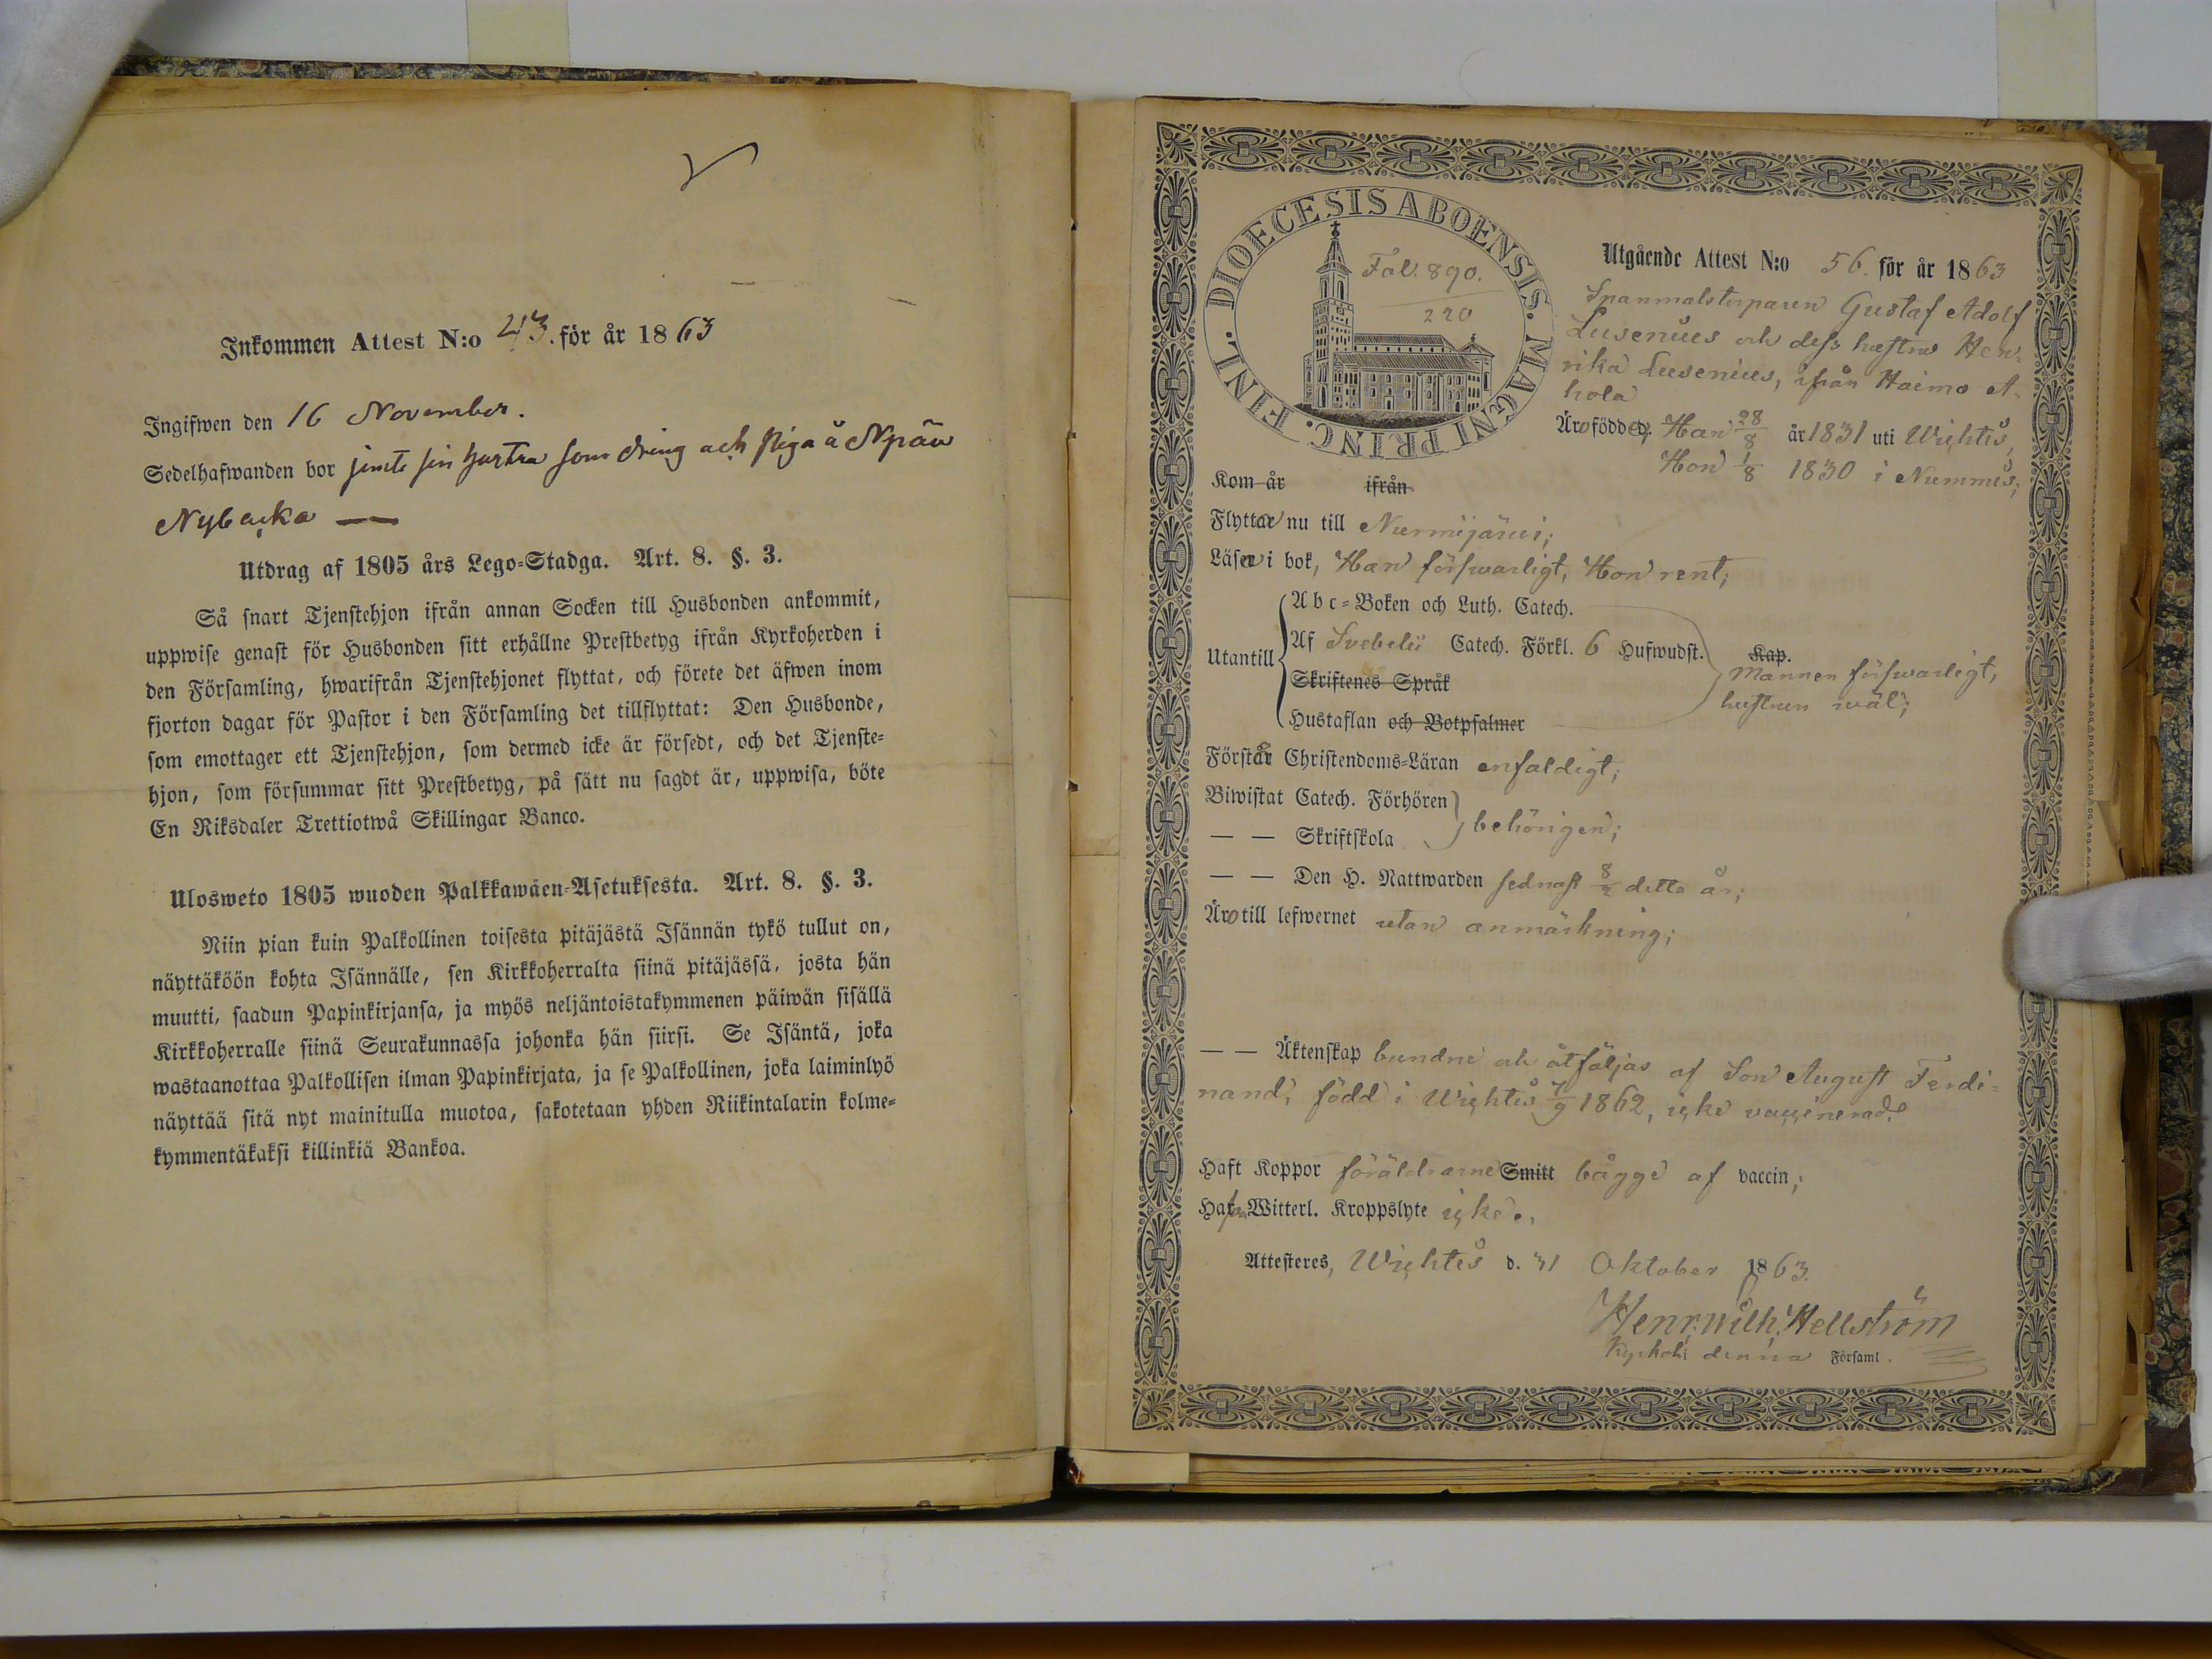 Inkommen Attest N:o 43. för år 1863
Ingifwen den 16 November.
Sedelhafwanden bor jemte sin hustru som dräng och piga å
Nybacka —
Utdrag af 1805 års Lego-Stadga. Art. 8. §. 3.
Så snart Tjenstehjon ifrån annan Socken till Husbonden ankommit,
uppwise genast för Husbonden sitt erhållne Prestbetyg ifrån Kyrkoherden i
den Församling, hwarifrån Tjenstehjonet flyttat, och förete det äfwen inom
fjorton dagar för Pastor i den Församling det tillflyttat: Den Husbonde,
som emottager ett Tjenstehjon, som dermed icke är försedt, och det Tjenste-
hjon, som försummar sitt Prestbetyg, på sätt nu sagdt är, uppwisa, böte
En Riksdaler Trettiotwå Skillingar Banco.
Ulosweto 1805 wuoden Palkkawäen-Asetuksesta. Art. 8. §. 3.
Niin pian kuin Palkollinen toisesta pitäjästä Isännän tykö tullut on,
näyttäköön kohta Isännälle, sen Kirkkoherralta siinä pitäjässä, josta hän
muutti, saadun Papinkirjansa, ja myös neljäntoistakymmenen päiwän sisällä
Kirkkoherralle siinä Seurakunnassa johonka hän siirsi. Se Isäntä, joka
wastaanottaa Palkollisen ilman Papinkirjata, ja se Palkollinen, joka laiminlyö
näyttää sitä nyt mainitulla muotoa, sakotetaan yhden Riikintalarin kolme-
kymmentäkaksi killinkiä Bankoa.
DIOECESIS ABOENSIS. MAGNI PRINC. FINL.
Fol. 890.
220
Utgående Attest N:o 56. för år 1863
Spanmålstorparen Gustaf Adolf
Lusenius och dess hustru Hen-
rika Lusenius, ifrån Haimo A-
hola
Äro födde, Han 28/8 år 1831 uti Wichtis,
Hon 1/8 1830 i Nummis;
Kom år ifrån
Flyttar nu till Nurmijärvi;
Läser i bok, Han förswarligt, Hon rent;
Utantill
Abc-Boken och Luth. Catech.
Af Svebelii Catech. Förkl. 6 Hufwudst. Kap.
Skriftenes Språk
Mannen förswarligt,
hustrun wäl;
Hustaflan och Botpsalmer
Förstår Christendoms-Läran enfaldigt;
Biwistat Catech. Förhören
— — Skriftskola behörigen;
— — Den H. Nattwarden sednast detta år;
Äro till lefwernet utan anmärkning;
— — Äktenskap bundne och åtföljas af Son August Ferdi-
nand, född i Wichtis 1862, icke vaccinerad.
Haft Koppor föräldrarne Smitt bägge af vaccin;
Hafva Witterl. Kroppslyte icke.
Attesteres, Wichtis d. 31 Oktober 1863.
Henr. Wilh. Hellström
Kyrkoh. i denna Församl.